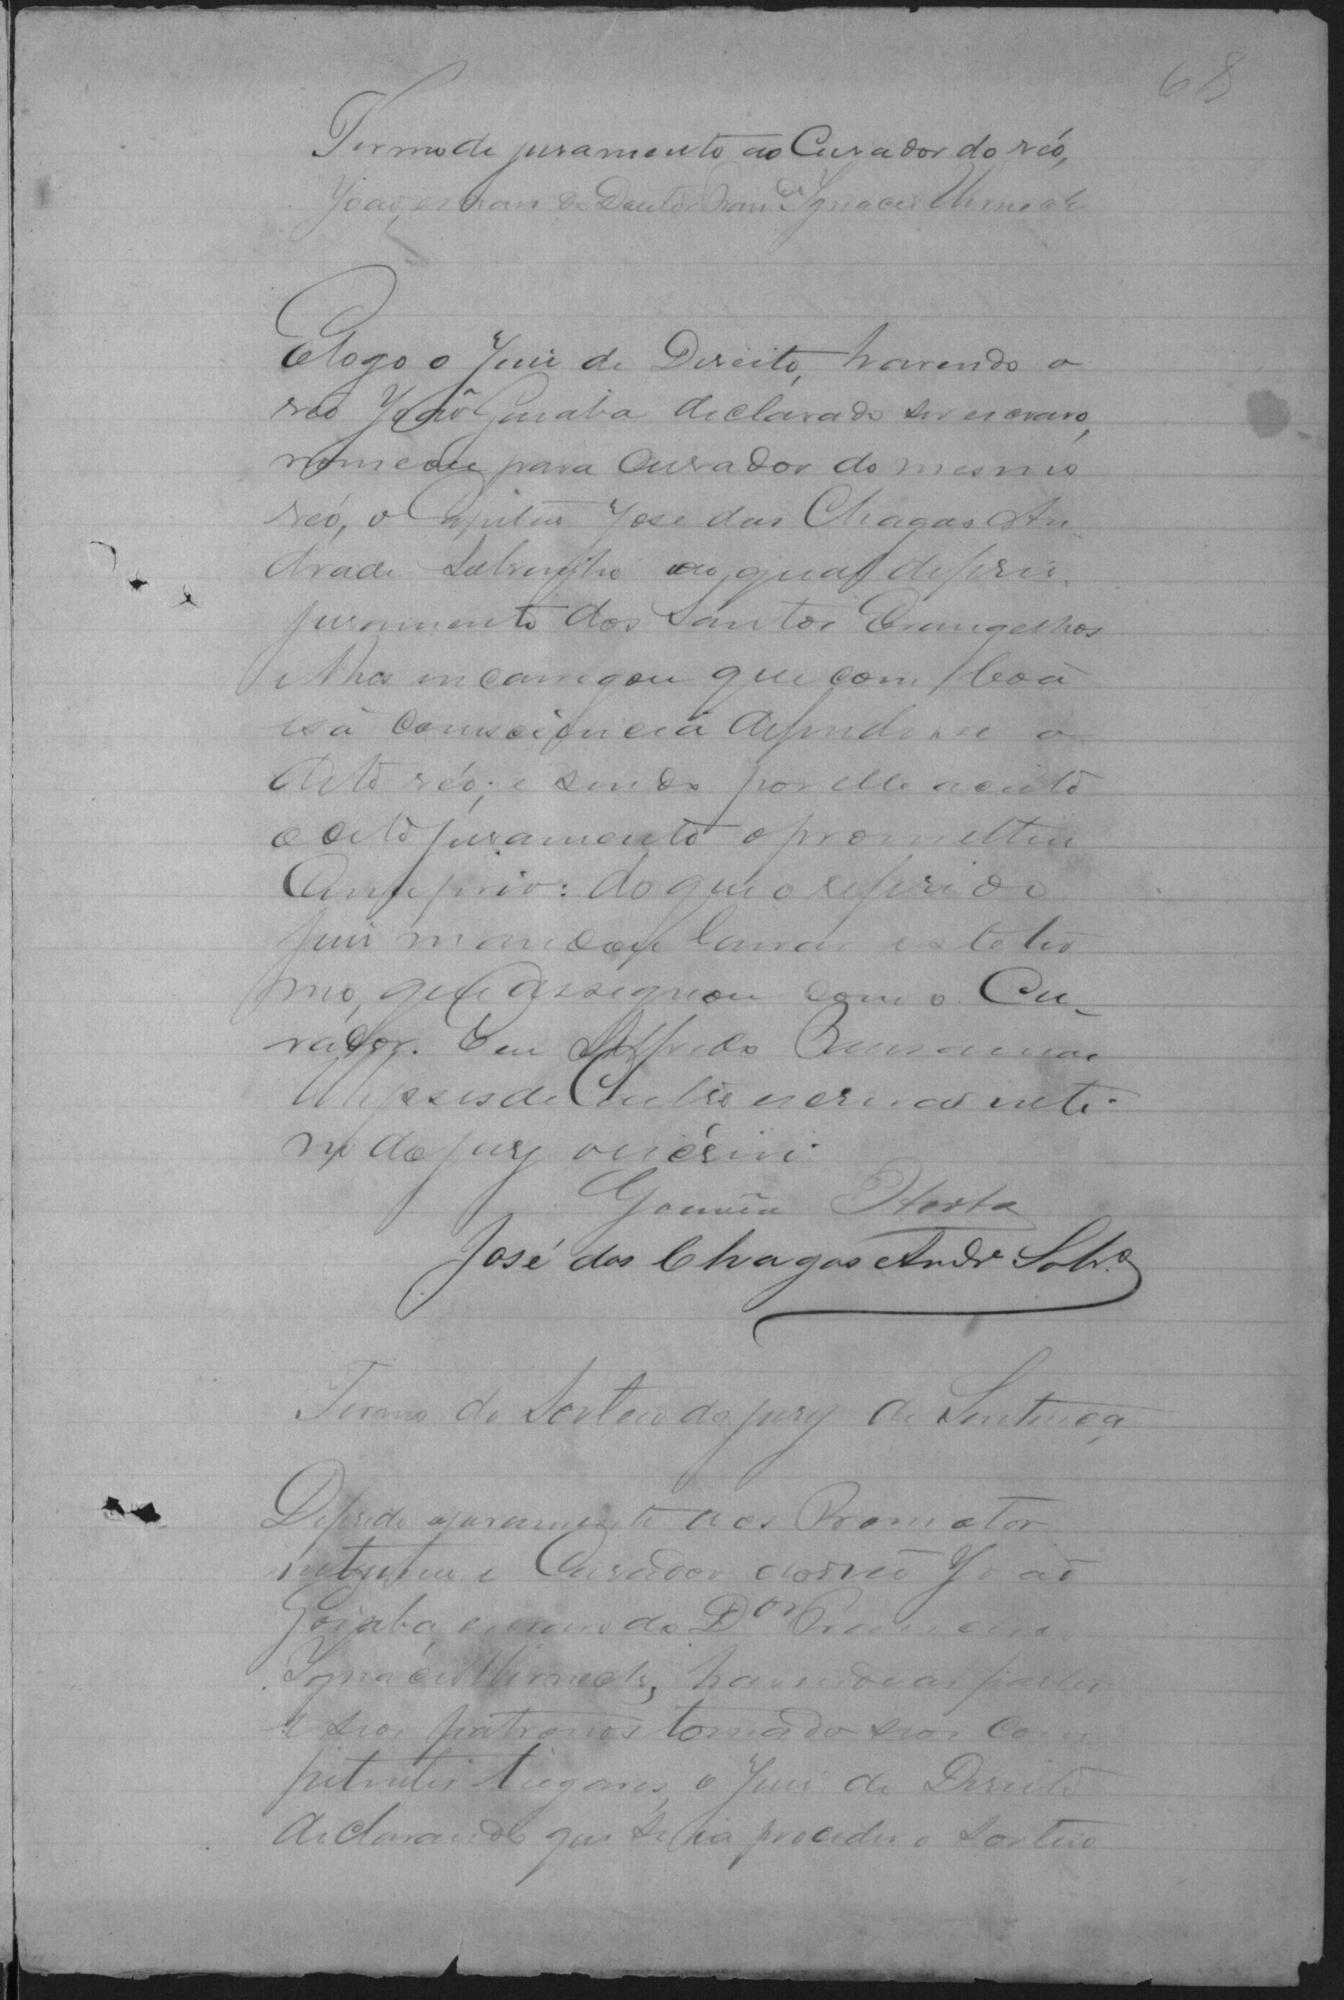 68
Termo de juramento ao Curador do réo,
João, escravo do Doutor Franc.co Ignacio Werneck
E logo o Juiz de Direito, havendo o
réo João Goiaba declarado ser escravo,
nomeou para Curador do mesmo
réo, o Capitão José das Chagas An-
drade Sobrinho ao qual deferio
juramento dos Santos Evangelhos
e lhe encarregou que com boa
e sã consciencia defendesse o
dito réo; e sendo por elle aceito
o dito juramento o prometteu
cumprir: do que o referido
juiz mandou lavrar este ter
mo, que assignou com o Cu-
rador. Eu Alfredo
de Castro escrivão inte-
rino do jury o escrivi.
Gouvêa Horta
José das Chagas Andr.e Sobr.o
Termo do Sorteio do jury de Sentença
Deferido o juramento aos Promotor
interino e Curador do réo João
Goiaba, escravo do Dor Francisco
Ignacio Werneck, havendo as partes
e seos patronos tomado seos com
petentes lugares, o Juiz de Direito
declarando que se ia proceder o sorteio